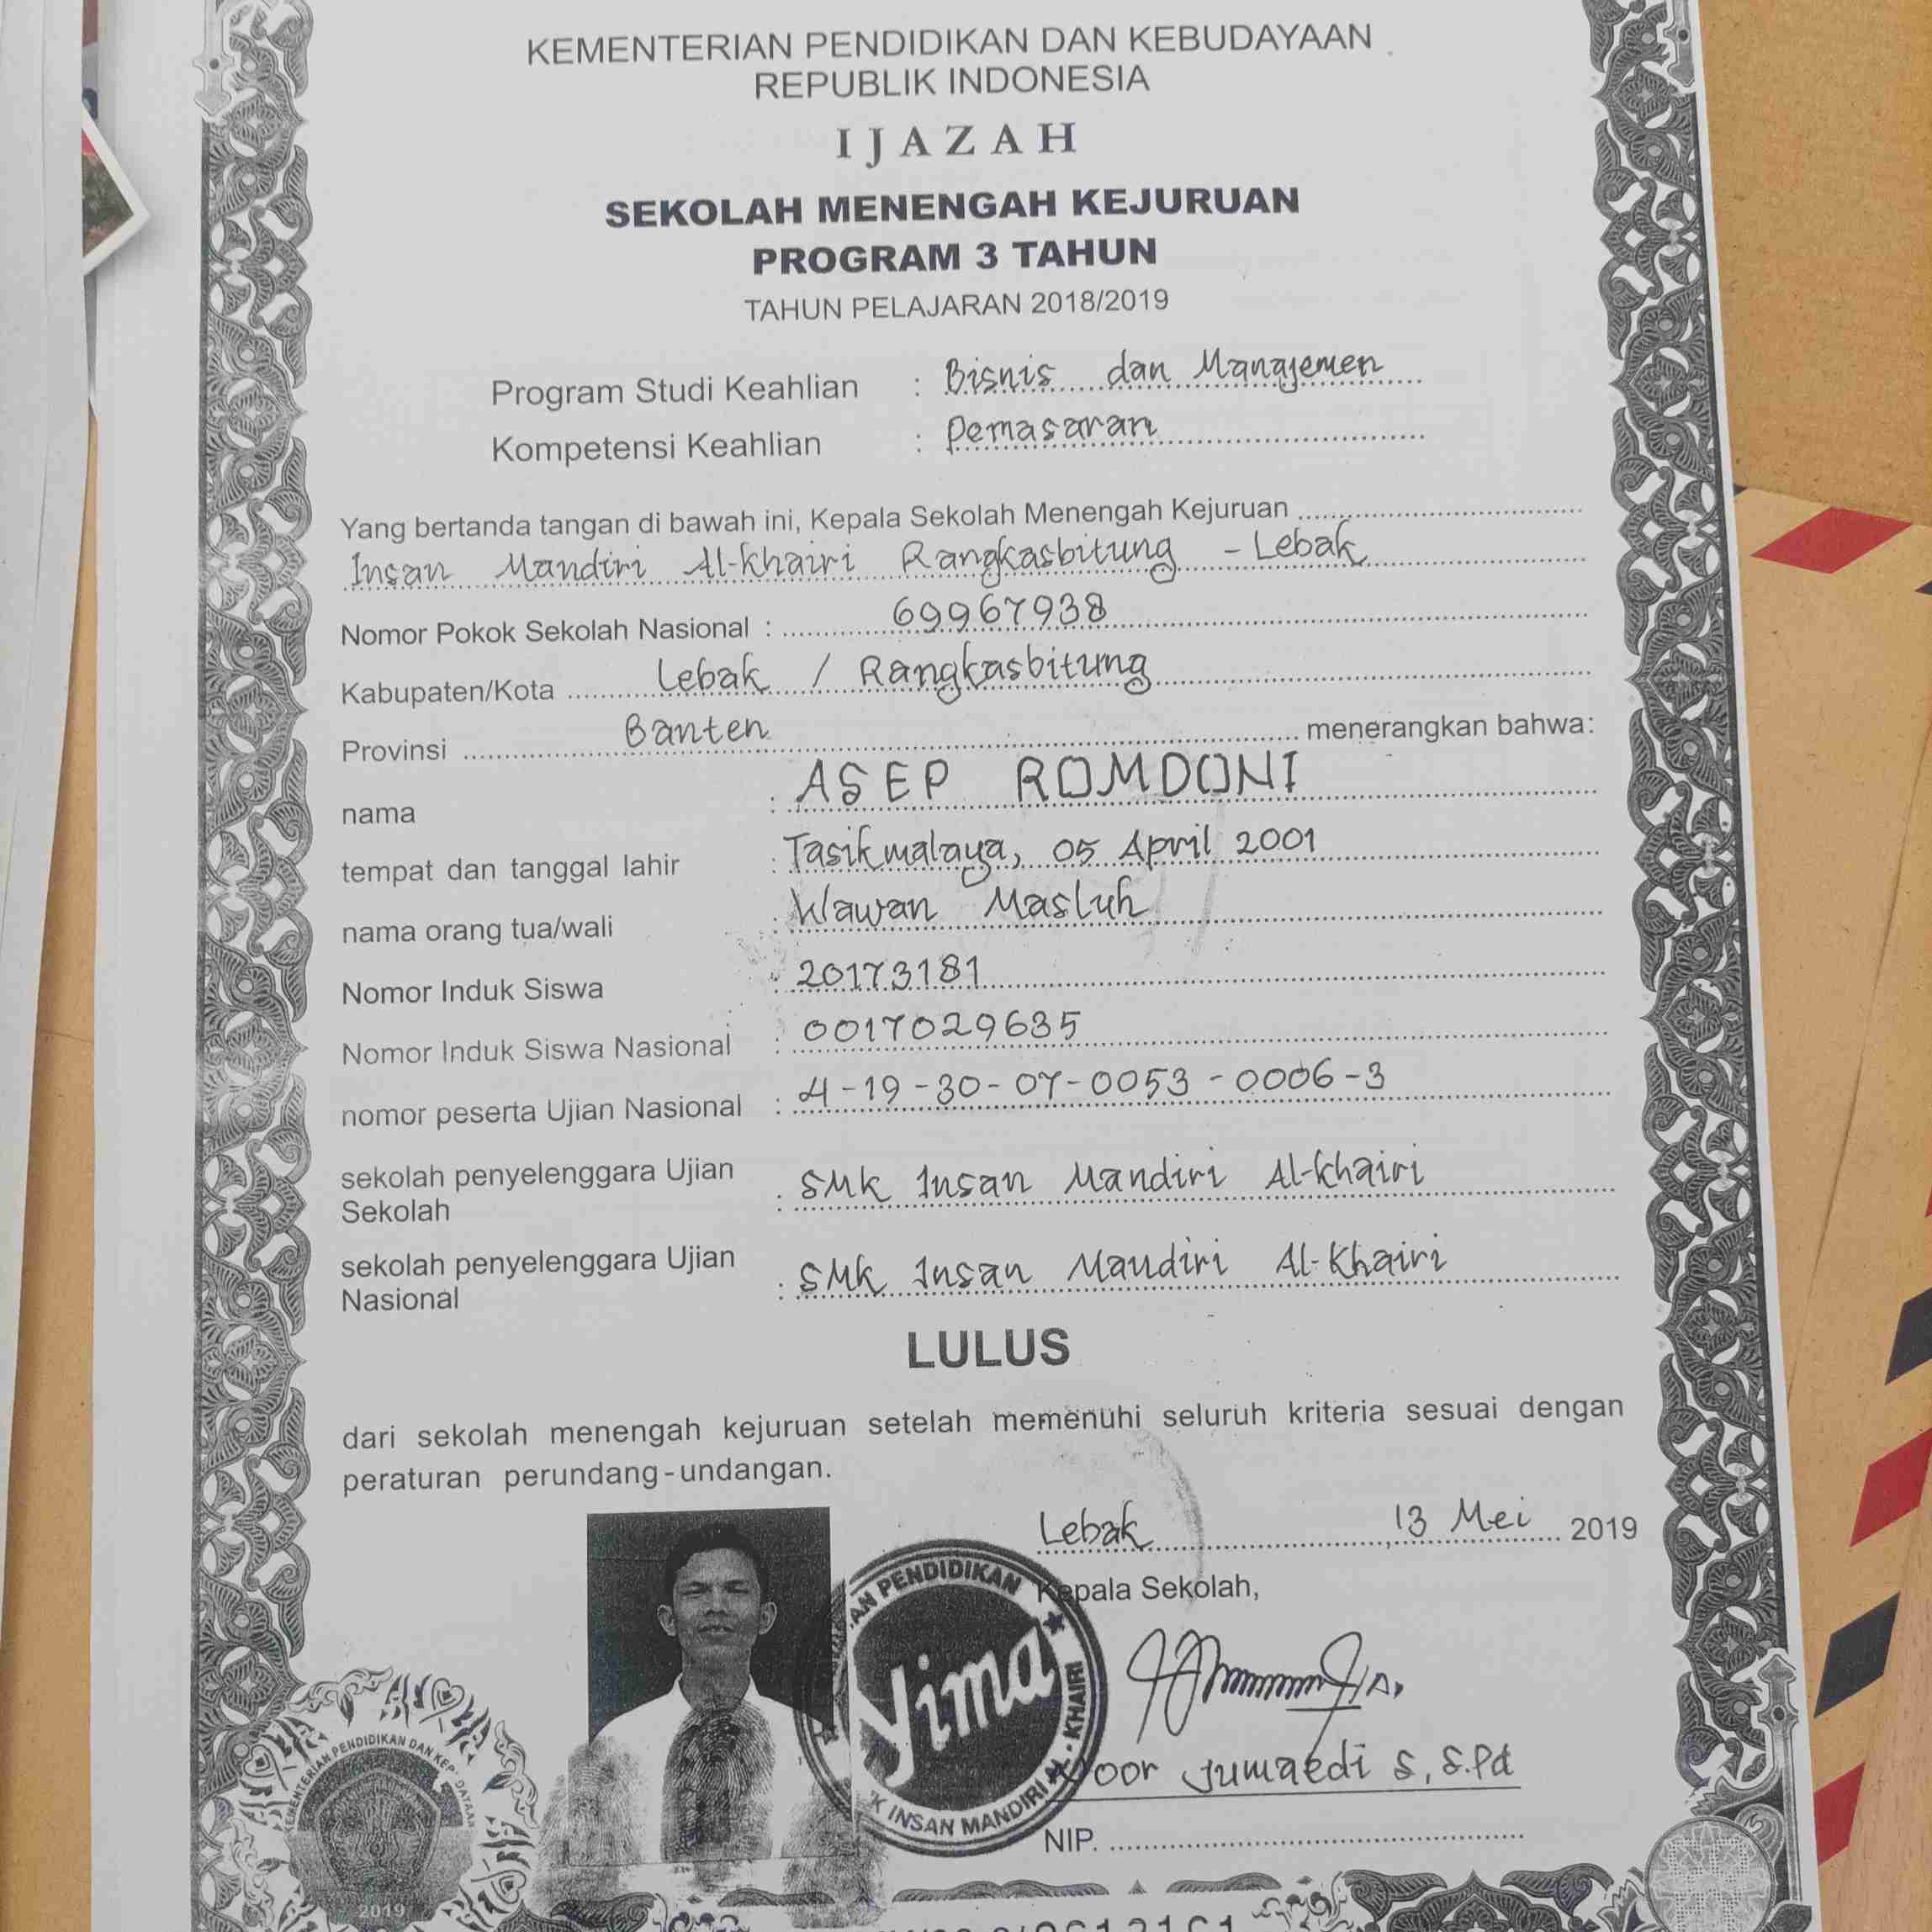 KEMENTERIAN PENDIDIKAN DAN KEBUDAYAAN
REPUBLIK INDONESIA
IJAZAH
SEKOLAH MENENGAH KEJURUAN
PROGRAM 3 TAHUN
TAHUN PELAJARAN 2018/2019
Program Studi Keahlian : Bisnis dan Manajemen
Kompetensi Keahlian : Pemasaran
Yang bertanda tangan di bawah ini, Kepala Sekolah Menengah Kejuruan
Insan Mandiri Al-Khairi Rangkasbitung - Lebak
Nomor Pokok Sekolah Nasional : 69967938
Kabupaten/Kota Lebak / Rangkasbitung
Provinsi Banten menerangkan bahwa:
nama : ASEP ROMDONI
tempat dan tanggal lahir : Tasikmalaya, 05 April 2001
nama orang tua/wali : Wawan Masluh
Nomor Induk Siswa : 20173181
Nomor Induk Siswa Nasional : 0017029635
nomor peserta Ujian Nasional : 4-19-30-07-0053-0006-3
sekolah penyelenggara Ujian
Sekolah : SMK Insan Mandiri Al-Khairi
sekolah penyelenggara Ujian
Nasional : SMK Insan Mandiri Al-Khairi
LULUS
dari sekolah menengah kejuruan setelah memenuhi seluruh kriteria sesuai dengan
peraturan perundang-undangan.
Lebak, 13 Mei 2019
Kepala Sekolah,
PENDIDIKAN
Yima
INSAN MANDIRI AL-KHAIRI
Noor Jumaedi S, S.Pd
NIP.
KEMENTERIAN PENDIDIKAN DAN
2019